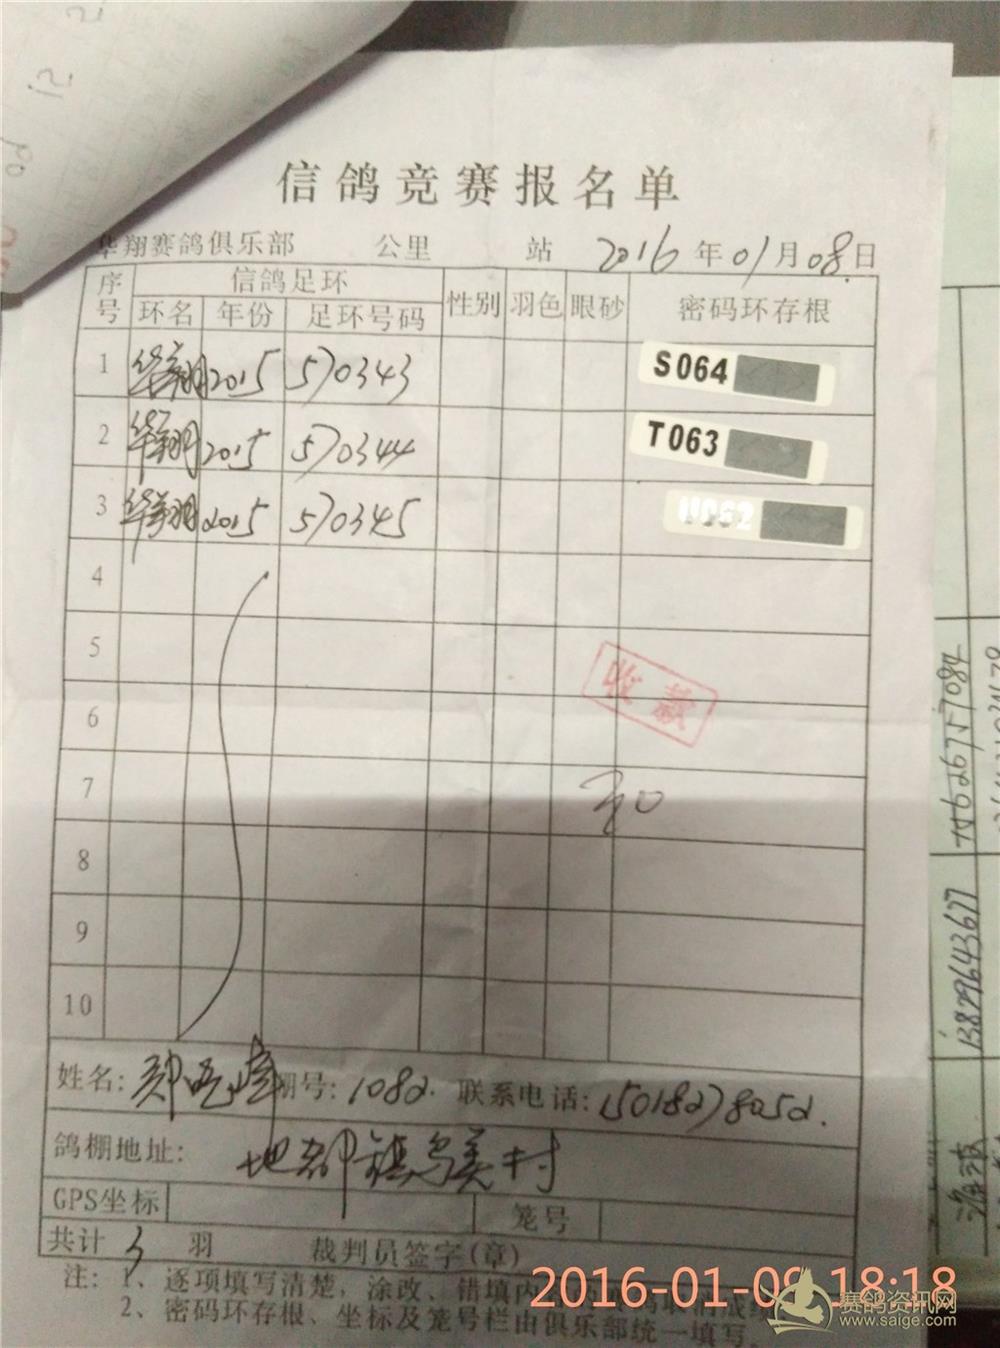 信鸽竞赛报名单
华翔赛鸽俱乐部 公里 站 2016年01月08日
序号 信鸽足环 性别 羽色 眼砂 密码环存根
环名 年份 足环号码
1 华翔 2015 570343 S064
2 华翔 2015 570344 T063
3 华翔 2015 570345 U062
4
5
6
收款
7
8
9
10
姓名: 郑 棚号: 1082 联系电话: 15018278052
鸽棚地址: 地都镇乌美村
GPS坐标 笼号
共计 3 羽 裁判员签字(章)
注: 1、逐项填写清楚,涂改、错填内
2、密码环存根、坐标及笼号栏由俱乐部统一填写。
2016-01-08 18:18
赛鸽资讯网
www.saige.com
13829643677